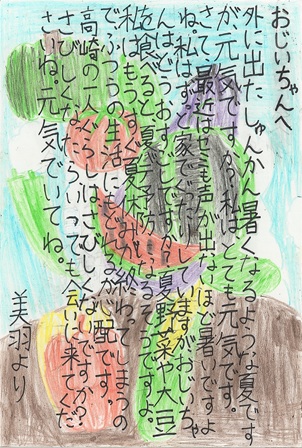 おじいちゃんへ
外に出たしゅんかん暑くなるような夏です
が元気ですか?私はとても元気です。
さて、最近はセミも声が出ないほど暑いですよ
ね。私はずっと家でぐったりしてますがおじいちゃ
んはどうおすごしですか?夏野菜や大豆
を食べると夏バテ予防になるそうですよ。
私はもうすぐ夏休みが終わってしまうの
でふつうの生活にもどれるか心配です。
高崎の一人ぐらしはさびしくないですか?
さびしくなったらいつでも会いに来てくだ
さいね。元気でいてね。
美羽より